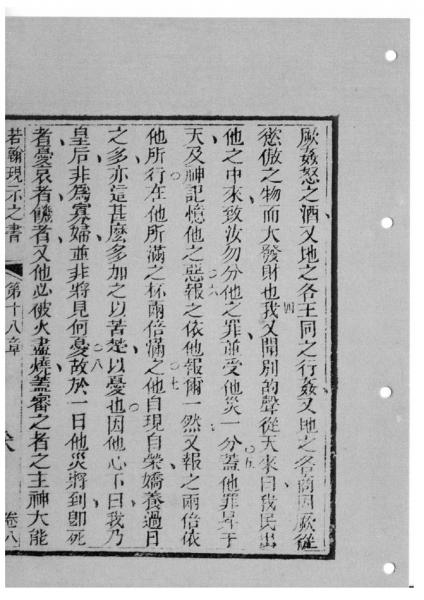 厥姦怒之酒又地之各王同之行姦又地之各商因厥從
慾傲之物而大發財也我又聞別的聲從天來曰我民出
四
他之中來致汝勿分他之罪並受他災一分蓋他罪昇于
五
天及神記憶他之惡報之依他報爾一然又報之兩倍依
六
他所行在他所滿之杯兩倍滿之他自現自榮嬌養過日
七
之多亦這甚麼多加之以苦楚以憂也因他心下曰我乃
皇后非為寡婦並非將見何憂故於一日他災將到即死
八
者憂哀者饑者又他必被火盡燒蓋審之者之主神大能
若翰現示之書 第十八章 卷八